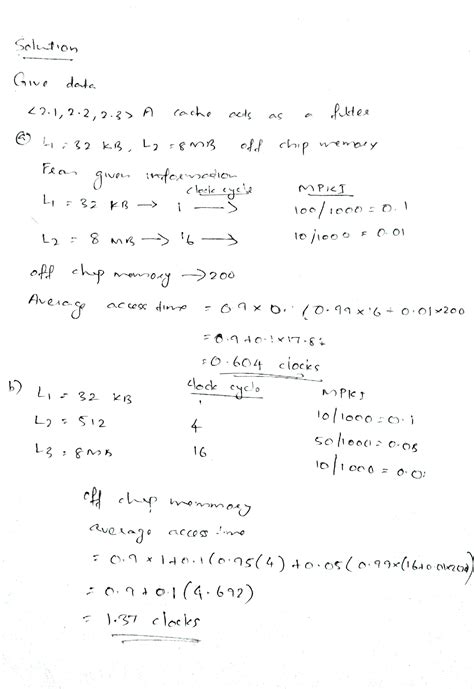 Solution
Give data
<2.1, 2.2, 2.3> A cache acts as a filter
(a) L1 = 32 KB, L2 = 8 MB off chip memory
From given information
clock cycle MPKI
L1 = 32 KB → 1 → 100/1000 = 0.1
L2 = 8 MB → 16 → 10/1000 = 0.01
off chip memory → 200
Average access time = 0.9 × 0.1 (0.99 × 16 + 0.01×200
= 0.9 + 0.1 × 17.8
= 0.604 clocks
b) clock cycle MPKI
L1 = 32 KB 1 10/1000 = 0.1
L2 = 512 4 50/1000 = 0.05
L3 = 8MB 16 10/1000 = 0.0
off chip memmory
average access time
= 0.9 × 1 + 0.1 (0.95(4) + 0.05 (0.99×(16+0.01×200)
= 0.9 + 0.1 (4.692)
= 1.37 clocks